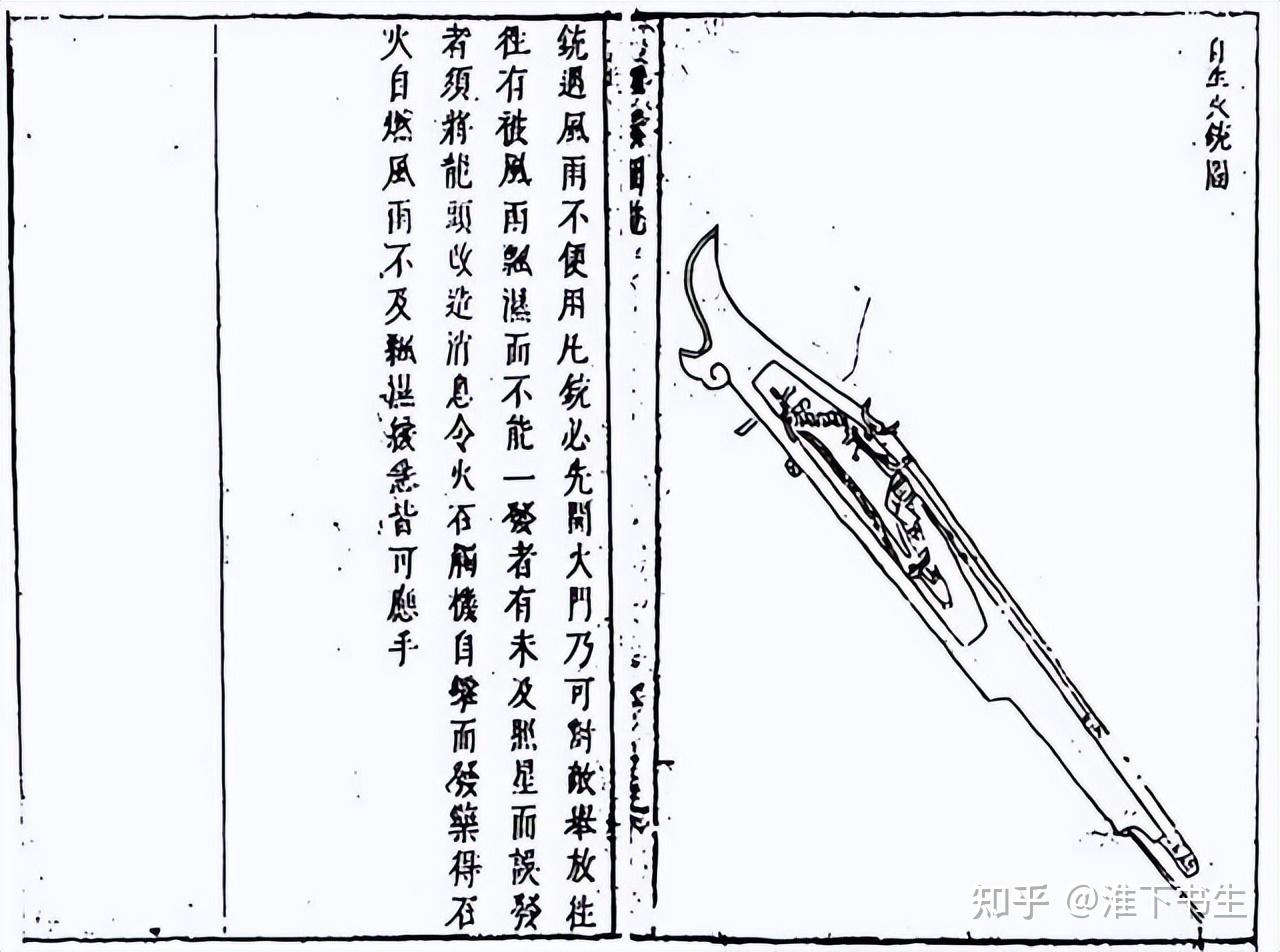 自生火銃圖
銃遇風雨不便用凡銃必先開火門乃可對敵舉放往
往有被風雨飄濕而不能一發者有未及照星而誤發
者須將龍頭改造消息令火石觸機自擊而發藥得石
火自燃風雨不及飄濕緩急皆可應手
知乎 @淮下书生